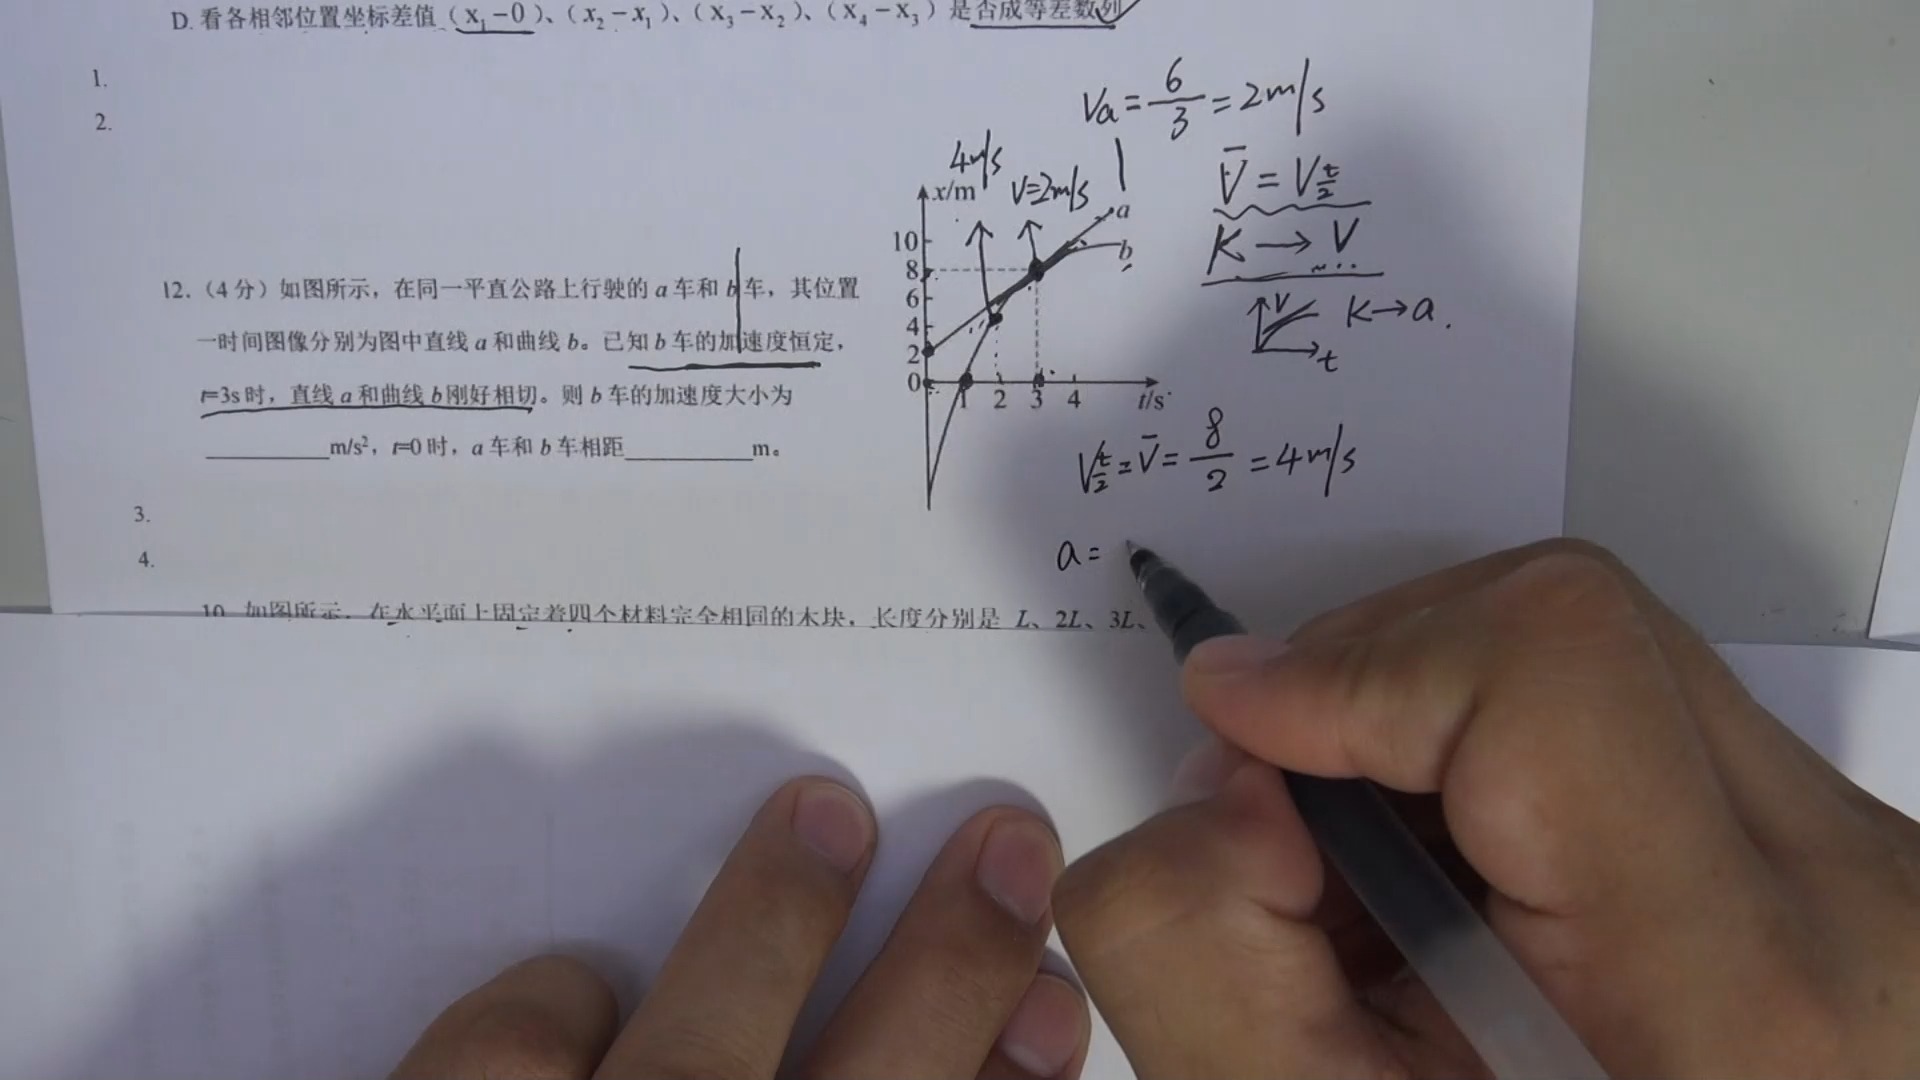 D. 看各相邻位置坐标差值（x₁－0）、（x₂－x₁）、（x₃－x₂）、（x₄－x₃）是否成等差数列
1.
2.
12.（4分）如图所示，在同一平直公路上行驶的 a 车和 b 车，其位置
一时间图像分别为图中直线 a 和曲线 b。已知 b 车的加速度恒定，
t=3s 时，直线 a 和曲线 b 刚好相切。则 b 车的加速度大小为
________m/s²，t=0 时，a 车和 b 车相距________m。
3.
4.
10. 如图所示，在水平面上固定着四个材料完全相同的木块，长度分别是 L、2L、3L、
x/m
10
8
6
4
2
0
1 2 3 4 t/s
a
b
4m/s
V=2m/s
Va = 6/3 = 2m/s
V̄ = V t/2
K → V
V
t
K→a.
V t/2 = V̄ = 8/2 = 4m/s
a =